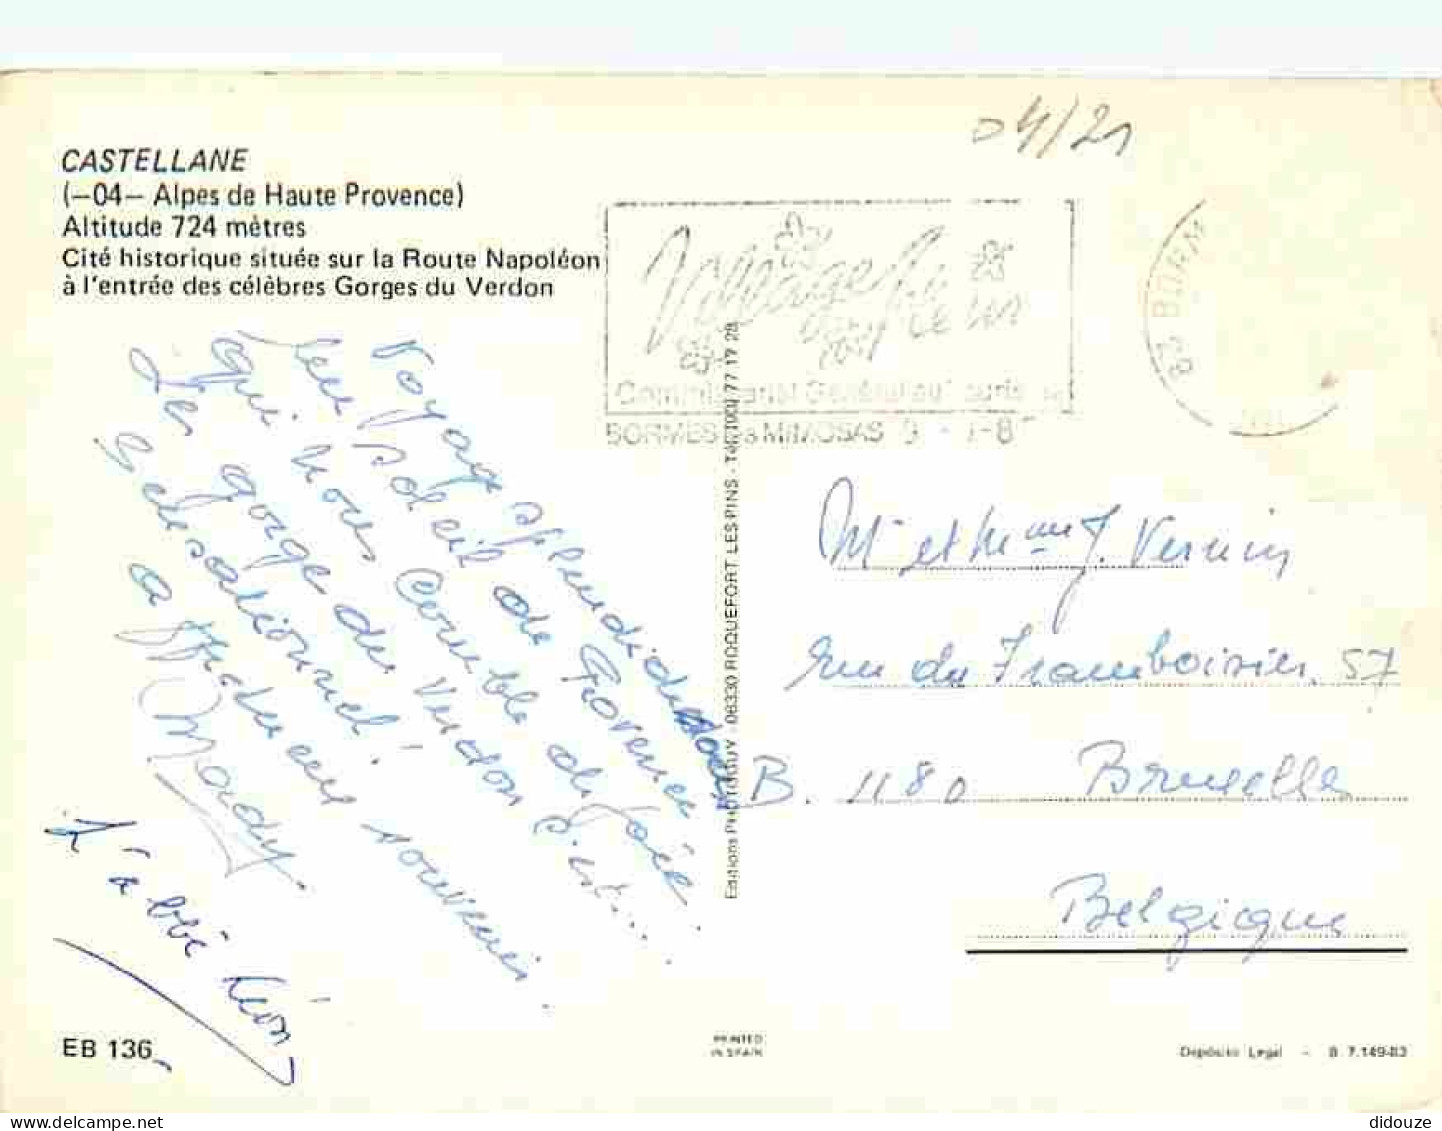 04/21
CASTELLANE
(—04— Alpes de Haute Provence)
Altitude 724 mètres
Cité historique située sur la Route Napoléon
à l'entrée des célèbres Gorges du Verdon
Village
Commissariat Général au
BORMES les MIMOSAS 9 - 7-8
83 BORM
Voyage splendide dans
le soleil de Provence
qui nous comble de joie.
Les gorge du Verdon c'est....
Sensationnel!
affectueux souvenir.
Mady.
L'abbé Léon
Editions PHOTOGUY - 06330 ROQUEFORT LES PINS - Tél. (93) 77 17 29
Mr et Mme J.
rue du Framboisier, 57
B. 1180 Bruxelles
Belgique
EB 136
PRINTED
IN SPAIN
Depósito Legal - B 7.149-83
didouze